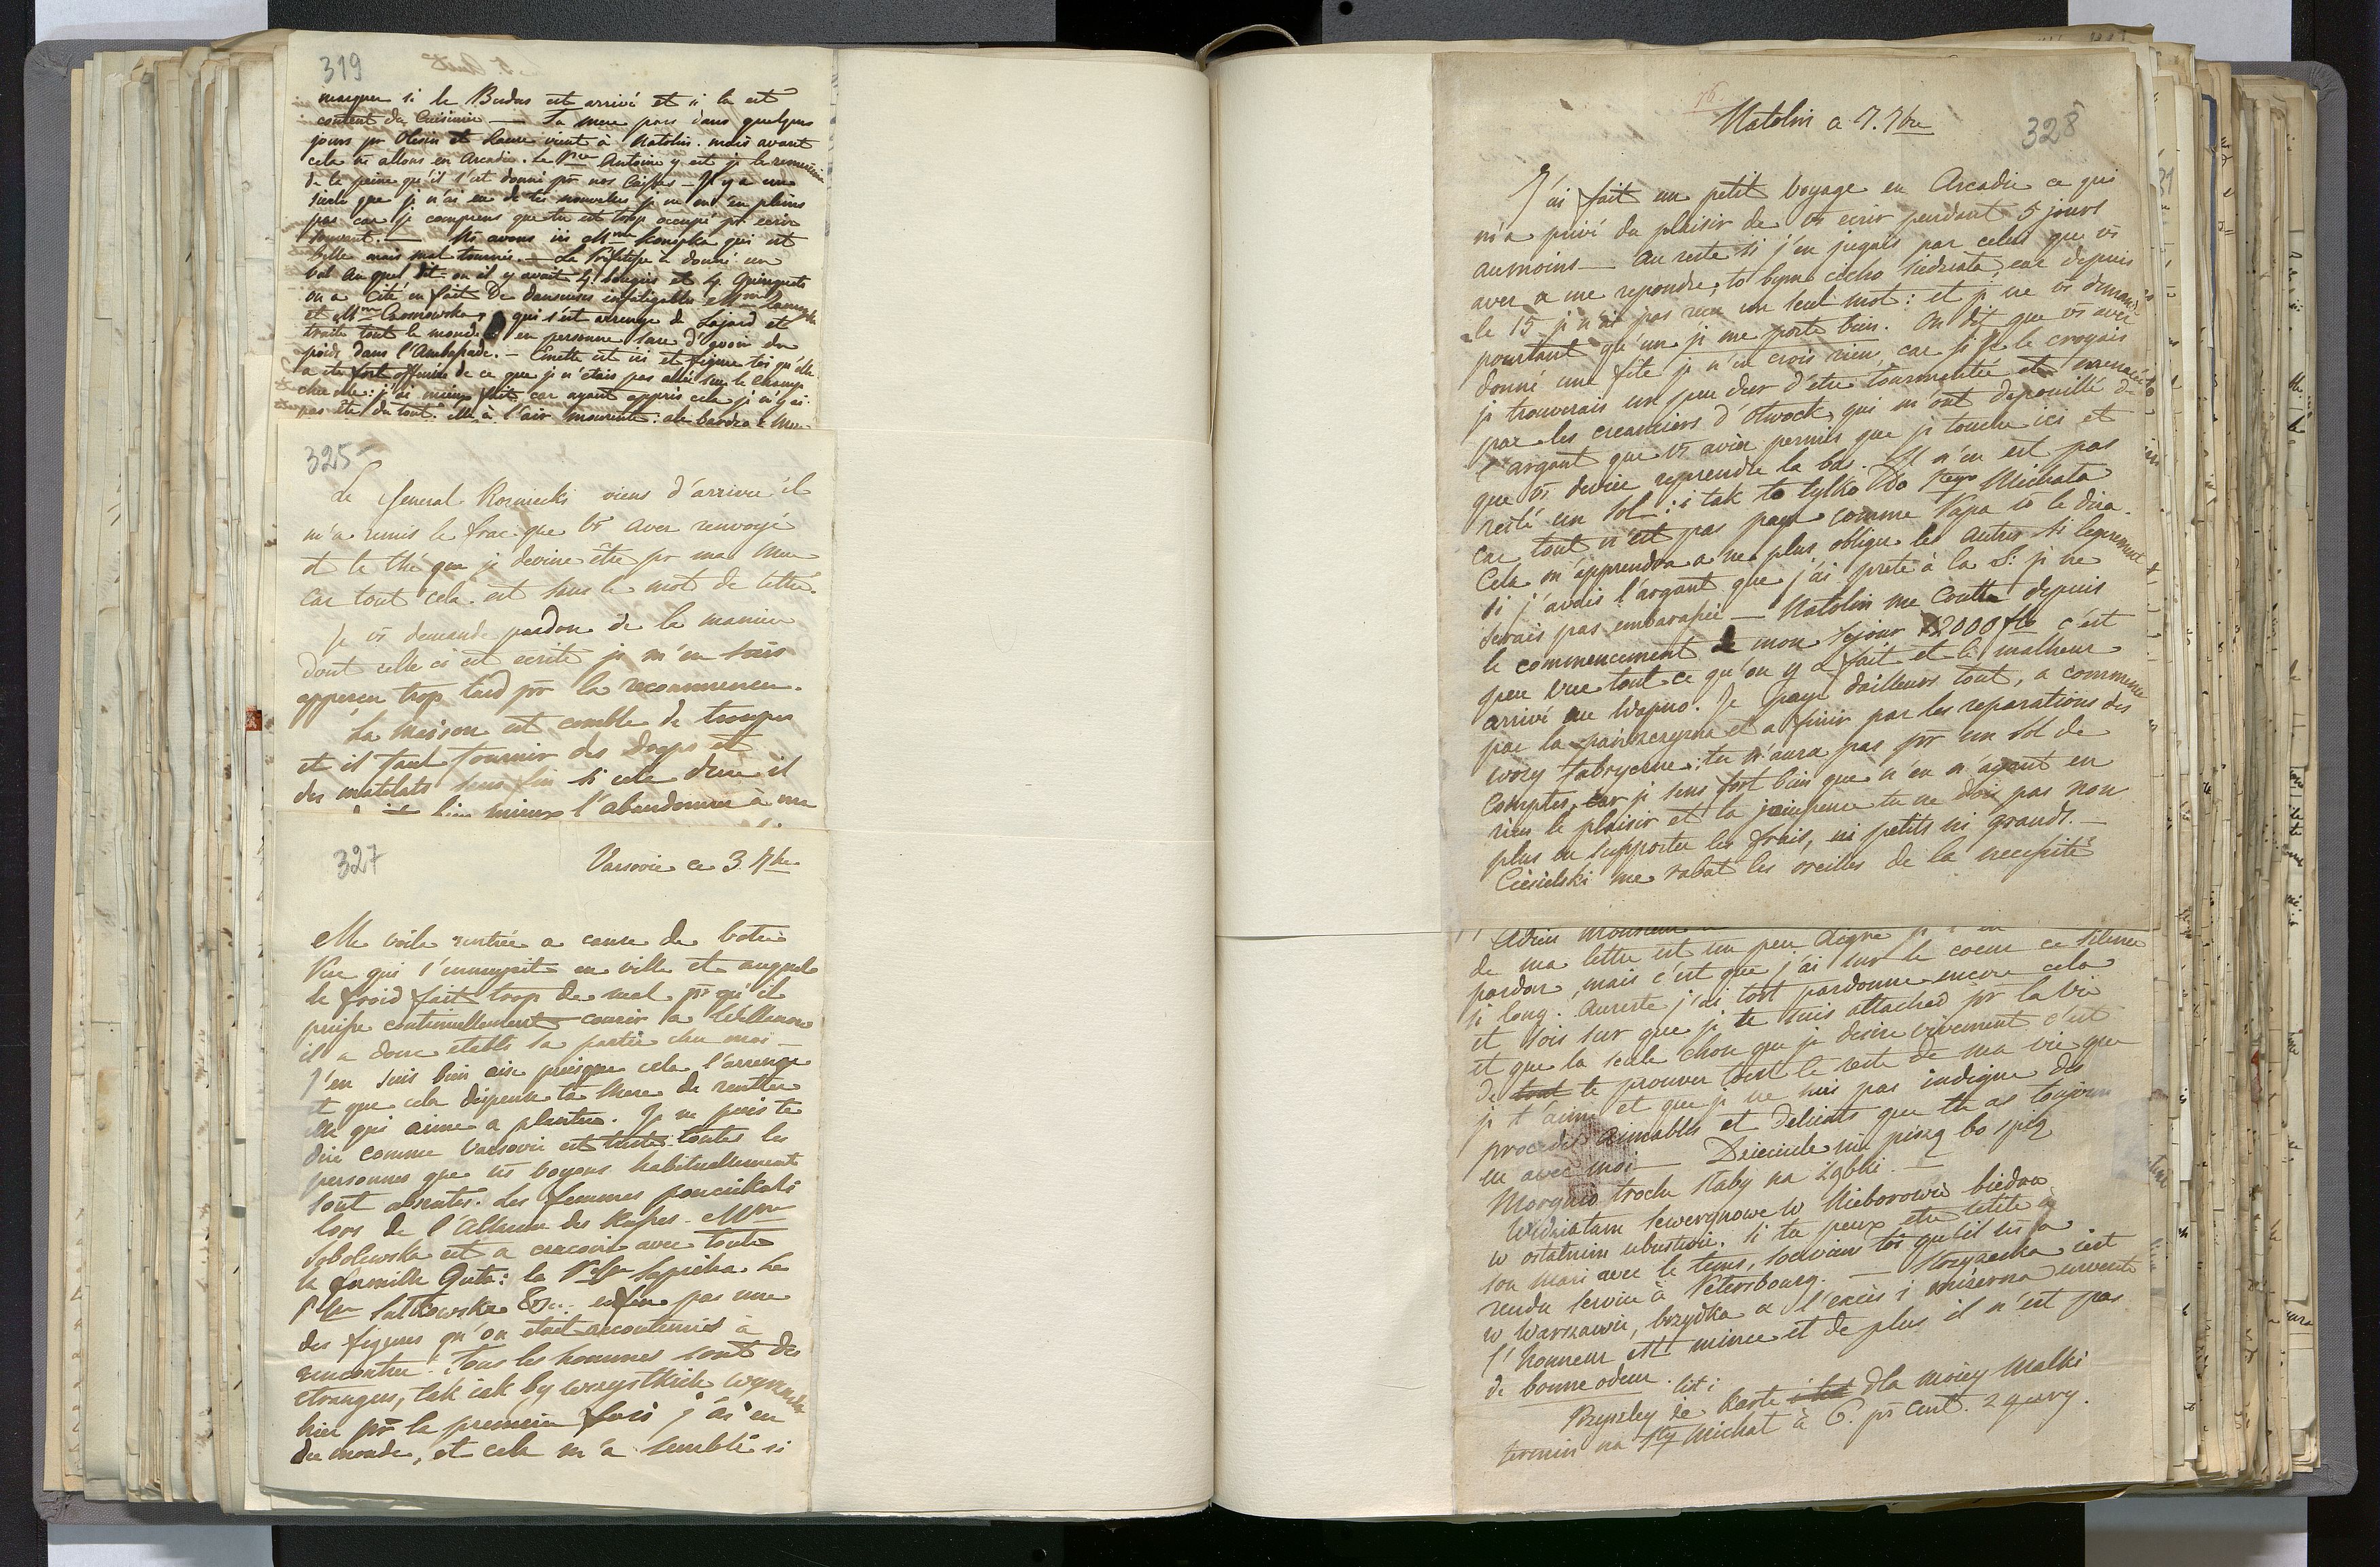 319
marquer si le Budos est arrivé et si tu est
content du Cuisinier — Ta mere pars dans quelques
jours pr Olesin et Laure vient à Natolin. mais avant
cela ns allons en Arcadie. Le Pce Antoine y est je le remercierai
de la peine qu'il s'est donné pr nos Caisses — Il y a un
siecle que je n'ai eu de tes nouvelles je ne m'en plains
pas car je comprens que tu est trop occupé pr ecrire
souvent. — Ns avons ici Mme Konopka qui est
belle mais mal tournée. — La Préfète a donné un
bal au quel dit on il y avait 4 bougies et 4 Quinquets
on a cité en fait de danseuses infatigables Mme
et Mme qui s'est arrengé de Lajard et
traite tout le monde en personne sure d'avoir du
poids dans l'Ambassade. — Emette est ici et figure toi qu'elle
a eté fort offensée de ce que je n'étais pas allée sur le champ
chez elle: j'ai mieux fait car ayant appris cela je n'y ai
pas été du tout. elle à l'air mourante. ale bardzo
325
Le General Rozniecki viens d'arriver il
m'a remis le frac que vs avez renvoyé
et le thé que je devine être pr ma Mere
car tout cela est sans le mot de lettre.
Je vs demande pardon de la maniere
dont celle ci est ecrite je m'en suis
apperçu trop tard pr la recommencer.
La maison est comble de troupes
et il faut fournir des draps et
des matelats sans fin si cela dure il
bien mieux l'abandonner à une
327
Varsovie ce 3. 7bre
Me voila rentrée a cause de votre
Pere qui s'ennuyait en ville et auquel
le froid fait trop de mal pr qu'il
puisse continuellement courir a Willanow
il a donc etabli sa partie chez moi —
J'en suis bien aise puisque cela l'arrenge
et que cela dispense ta Mere de rentrer
elle qui aime a planter. Je ne puis te
dire comme Varsovie est triste toutes les
personnes que ns voyons habituellement
sont absentes. Les femmes
lors de l'allure des Russes. Mme
Sobolewska est a cracovie avec toute
la famille Gut: la Psse Sapieha. La
Psse Sulkowska &c. enfin pas une
des figures qu'on etait accoutumé à
rencontrer. Tous les hommes sont des
etrangers, tak iak by wszystkich
hier pr la premiere fois j'ai eu
du monde, et cela m'a semblé si
76
Natolin a 7. 7bre
328
J'ai fait un petit voyage en Arcadie ce qui
m'a privé du plaisir de vs ecrir pendant 5 jours
aumoins — Au reste si j'en jugeais par celui que vs
avez a me repondre, to bym cicho siedziała, car depuis
le 15 je n'ai pas reçu un seul mot: et je ne vs demande
pourtant qu'un je me porte bien. On dit que vs avez
donné une fête je n'en crois rien, car si je le croyais
je trouverais un peu dur d'etre tourmentée et
par les creanciers d'Otwock qui m'ont depouillé de
l'argant que vs aviez permis que je touche ici et
que vs deviez reprendre la bas. Il n'en est pas
resté un sol: i tak to tylko do Sgo Michała
car tout n'est pas payé comme Papa vs le dira.
Cela m'apprendra a ne plus obliger les Autres si legerement
si j'avais l'argant que j'ai preté à la S: je ne
serais pas embarassée — Natolin me Coutte depuis
le commencement de mon sejour 12000 fls c'est
peu vue tout ce qu'on y a fait et le malheur
arrivé au Wapno. Je paye d'ailleurs tout, a commencer
par la pańszczyzna et a finir par les reparations des
wozy fabryczne: tu n'aura pas pr un sol de
Comptes, car je sens fort bien que n'en n'ayant en
rien le plaisir et la jouissence tu ne dois pas non
plus en supporter les frais, ni petits ni grands. —
Ciesielski me rabat les oreilles de la necessité
Adieu
de ma lettre est un peu Aigre
pardon, mais c'est que j'ai sur le coeur ce silence
si long. Aureste j'ai tort pardonne encore cela
et sois sur que je te suis attachée pr la vie
et que la seule chose que je desire vivement c'est
de tout te prouver tout le reste de ma vie que
je t'aime et que je ne suis pas indigne des
procedés aimables et delicats que tu as toujours
eu avec moi — Dziecinile nie piszą bo spią
Morynio trochu słaby na ząbki. —
Widziałam Sewerynowę w Nieborowie biedna
w ostatnim ubustwie. Si tu peux etre utile a
son Mari avec le tems, souviens toi qu'il ns a
rendu service à Petersbourg. — iest
w Warszawie, brzydka a l'excès i mizerna
l'honneur est mince et de plus il n'est pas
de bonne odeur.
list i
Przyszley że Karte i list dla moiey Matki
termin na Sty Michał à 6. pr Cent.